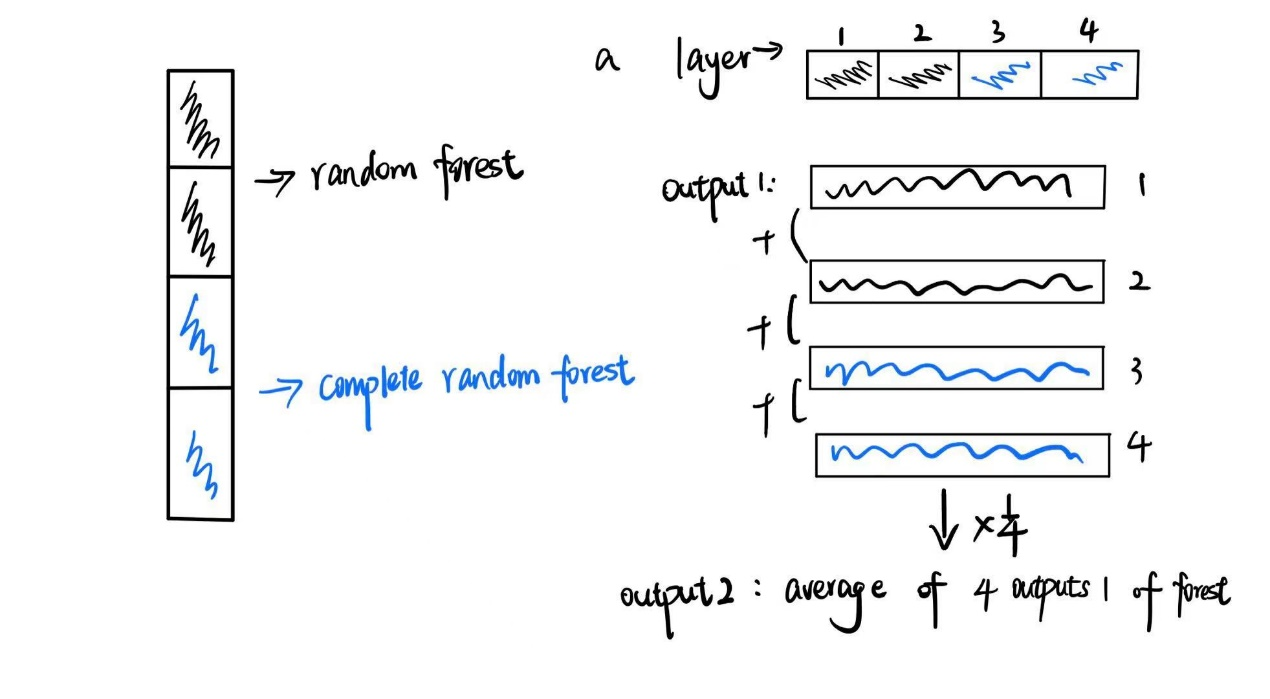 → random forest
→ complete random forest
a layer→
1 2 3 4
output1:
1
+
2
+
3
+
4
×1/4
output2: average of 4 outputs 1 of forest